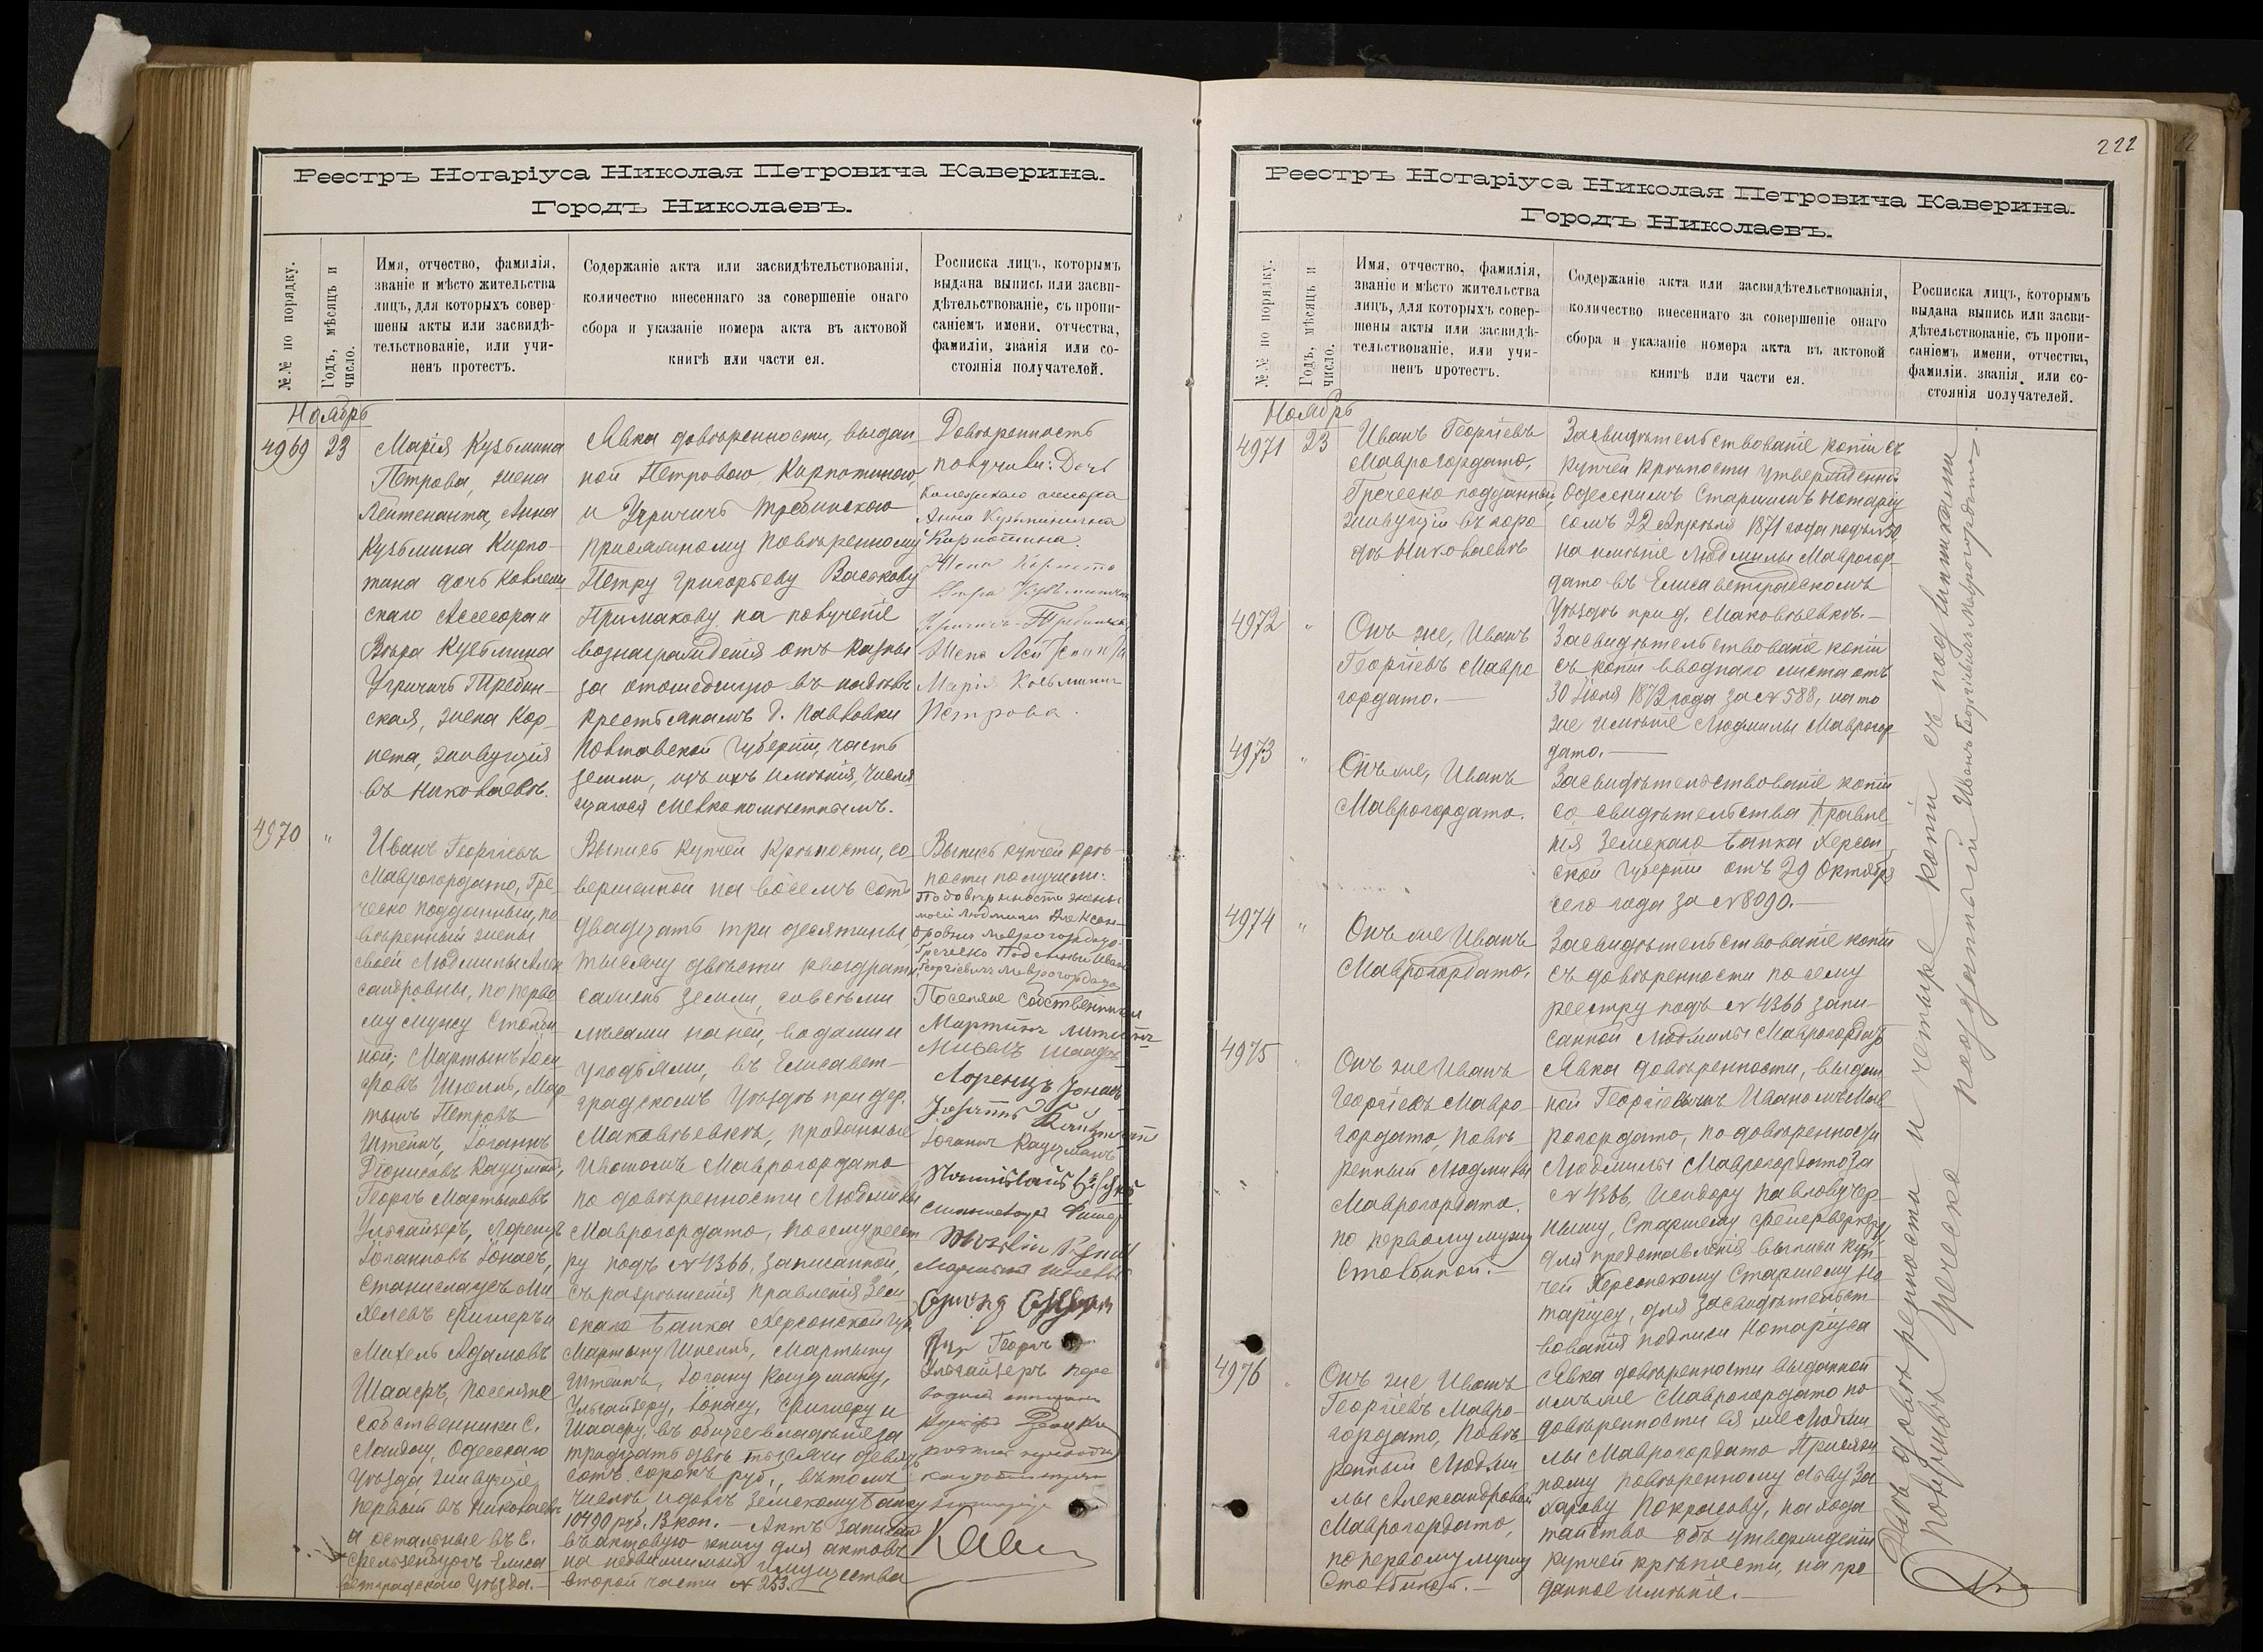 Реестръ Нотаріуса Николая Петровича Каверина.
Городъ Николаевъ.
№№ по порядку.
Годъ, мѣсяцъ и
число.
Имя, отчество, фамилія,
званіе и мѣсто жительства
лицъ, для которыхъ совер-
шены акты или засвидѣ-
тельствованіе, или учи-
ненъ протестъ.
Содержаніе акта или засвидѣтельствованія,
количество внесеннаго за совершеніе онаго
сбора и указаніе номера акта въ актовой
книгѣ или части ея.
Росписка лицъ, которымъ
выдана выпись или засви-
дѣтельствованіе, съ пропи-
саніемъ имени, отчества,
фамиліи, званія или со-
стоянія получателей.
Ноябрь
4969 23
Марія Кузьмина
Петрова, жена
Лейтенанта, Анна
Кузьмина Кирпо-
тина дочь Коллеж
скаго Ассесора и
Вѣра Кузьмина
Угричичъ Требин-
ская, жена Кор-
нета, живущія
въ Николаевѣ.
Явка довѣренности, выдан
ной Петровою, Кирпотиною,
и Угричичъ Требинскою
присяжному повѣренному
Петру Григорьеву Васькову
Примакову, на полученіе
вознагражденія отъ казны
за отошедшую въ надѣлъ
крестьянамъ д. Павловки
Полтавской губерніи, часть
земли, изъ ихъ имѣнія, числя
щагося мелкопомѣстнымъ.
Довѣренность
получили: Дочь
Колежскаго ассесора
Анна Кузьминична
Кирпотина.
Жена Корнета
Вѣра Кузьминична
Угричичъ-Требинская
Жена Лейтенанта
Марія Козьминич
Петрова.
4970 "
Иванъ Георгіевъ
Маврогордато, Гре-
ческо подданный, по
вѣренный жены
своей Людмилы Алек
сандровны, по перво
му мужу Столби-
ной; Мартынъ Іоси
фовъ Шнелль, Мар
тынъ Петровъ
Штейнъ, Іоганнъ
Діонисовъ Кауцманъ,
Георгъ Мартыновъ
Ульгайзеръ, Лоренцъ
Іоганновъ Іонасъ,
Станиславъ Ми-
хелевъ Фишеръ и
Михель Адамовъ
Шаафъ, поселяне
собственники с.
Ландау, Одесскаго
уѣзда, живущіе,
первый въ Николаевѣ
а остальные въ с.
Фельзенбургъ Елиса
ветградскаго уѣзда.-
Выпись купчей крѣпости, со
вершенной на восемь сотъ
двадцать три десятины,
тысячу двѣсти квадратн
саженъ земли, со всѣми
лѣсами на ней, водами и
угодьями, въ Елисавет-
градскомъ уѣздѣ при дер.
Маковѣевкѣ, проданные
Иваномъ Маврогордато
по довѣренности Людмилы
Маврогордато, по сему реест
ру подъ № 4366, записанной,
съ разрѣшенія Правленія Зем
скаго банка Херсонской губ
Мартыну Шнелль, Мартыну
Штейнъ, Іогану Кауцману,
Ульгайзеру, Іонасу, Фишеру и
Шаафу, въ общее владѣніе за
тридцать двѣ тысячи девять
сотъ сорокъ руб., въ томъ
числѣ и долгъ Земскому банку
10490 руб. 13 коп. – Актъ записанъ
въ актовую книгу для актовъ
на недвижимыя имущества
второй части № 253.
Выпись купчей крѣ-
пости получили:
По довѣренности жены
моей Людмилы Алексан-
дровны Маврогордато
Греческо Подданный Иванъ
Георгіевичъ Маврогордато
Поселяне собственники
Мартинъ Штейнъ
Михель Шаафъ
Лоренцъ Іонасъ
Іоганнъ Кауцманъ
Станиславъ Фишеръ
Мартинъ Шнелль
Георгъ
Ульгайзеръ
222
Реестръ Нотаріуса Николая Петровича Каверина.
Городъ Николаевъ.
№№ по порядку.
Годъ, мѣсяцъ и
число.
Имя, отчество, фамилія,
званіе и мѣсто жительства
лицъ, для которыхъ совер-
шены акты или засвидѣ-
тельствованіе, или учи-
ненъ протестъ.
Содержаніе акта или засвидѣтельствованія,
количество внесеннаго за совершеніе онаго
сбора и указаніе номера акта въ актовой
книгѣ или части ея.
Росписка лицъ, которымъ
выдана выпись или засви-
дѣтельствованіе, съ пропи-
саніемъ имени, отчества,
фамиліи, званія, или со-
стоянія получателей.
Ноябрь
4971 23
Иванъ Георгіевъ
Маврогордато,
Греческо подданный,
живущій въ горо-
дѣ Николаевѣ
Засвидѣтельствованіе копіи съ
купчей крѣпости утвержденной
Одесскимъ Старшимъ Нотаріу
сомъ 22 Апрѣля 1871 года подъ № 50,
на имѣніе Людмилы Маврогор-
дато въ Елисаветградскомъ
уѣздѣ при д. Маковѣевкѣ.-
4972 "
Онъ же, Иванъ
Георгіевъ Мавро
гордато.-
Засвидѣтельствованіе копіи
съ копіи вводнаго листа отъ
30 Іюля 1872 года за № 588, на то
же имѣніе Людмилы Маврогор
дато.
4973 "
Онъ же, Иванъ
Маврогордато.
Засвидѣтельствованіе копіи
со свидѣтельства Правле
нія Земскаго банка Херсон
ской губерніи отъ 29 Октября
сего года за № 8090.-
4974 "
Онъ же Иванъ
Маврогордато,
Засвидѣтельствованіе копіи
съ довѣренности по сему
реестру подъ № 4366 запи-
санной Людмилы Маврогордато
4975 "
Онъ же Иванъ
Георгіевъ Мавро-
гордато, повѣ-
ренный Людмилы
Маврогордато.
по первому мужу
Столбиной.-
Явка довѣренности, выдан
ной Георгіевымъ Иваномъ Мав
рогордато, по довѣренности
Людмилы Маврогордато за
№ 4366 Исидору Павлову Чер-
ныму, Старшему фейерверкеру,
для представленія выписи куп-
чей Херсонскому Старшему Но
таріусу, для засвидѣтельст-
вованія подписи Нотаріуса
4976 "
Онъ же, Иванъ
Георгіевъ Мавро-
гордато, повѣ-
ренный Людми
лы Александровой
Маврогордато,
по первому мужу
Столбиной.-
Явка довѣренности выданной
имъ же Маврогордато по
довѣренности ея же Людми
лы Маврогордато Присяж
ному повѣренному Льву За
харову Покрасову, на хода
тайство объ утвержденіи
купчей крѣпости, на про
данное имѣніе.-
Двѣ довѣренности и четыре копіи съ подлинниками
получилъ Греческо подданный Иванъ Георгіевичъ Маврогордато